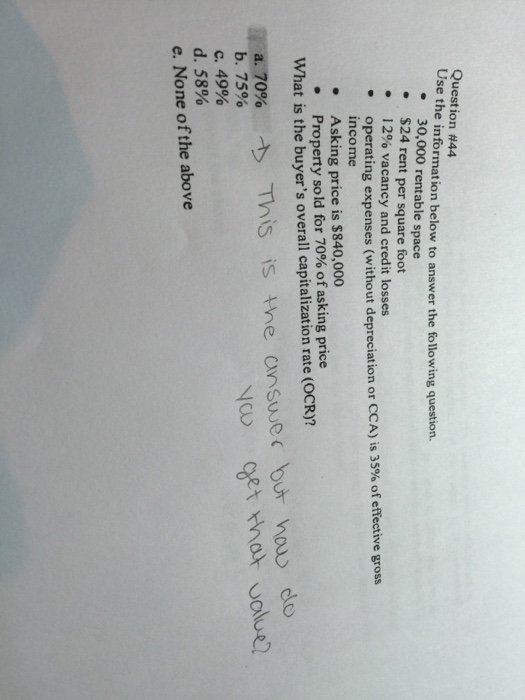 Question #44
Use the information below to answer the following question.
• 30,000 rentable space
• $24 rent per square foot
• 12% vacancy and credit losses
• operating expenses (without depreciation or CCA) is 35% of effective gross
income
• Asking price is $840,000
• Property sold for 70% of asking price
What is the buyer's overall capitalization rate (OCR)?
a. 70% → This is the answer but how do
you get that value?
b. 75%
c. 49%
d. 58%
e. None of the above